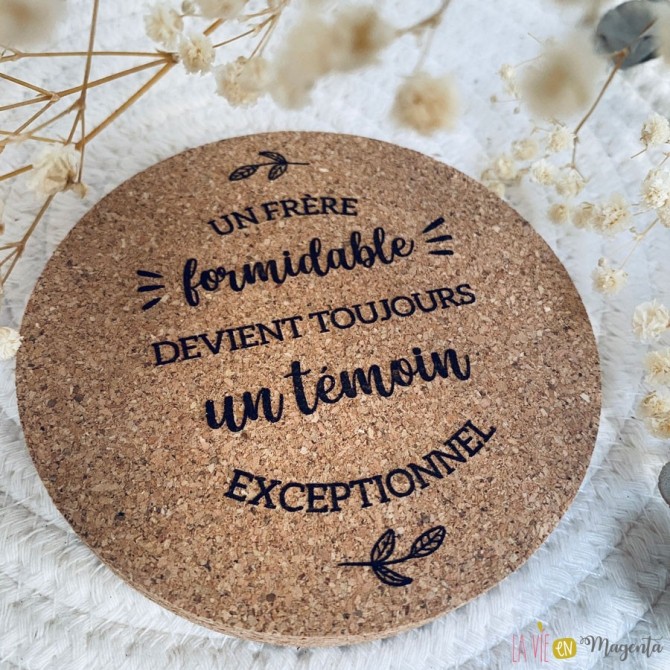 UN FRÈRE
formidable
DEVIENT TOUJOURS
un témoin
EXCEPTIONNEL
LA VIE EN Magenta